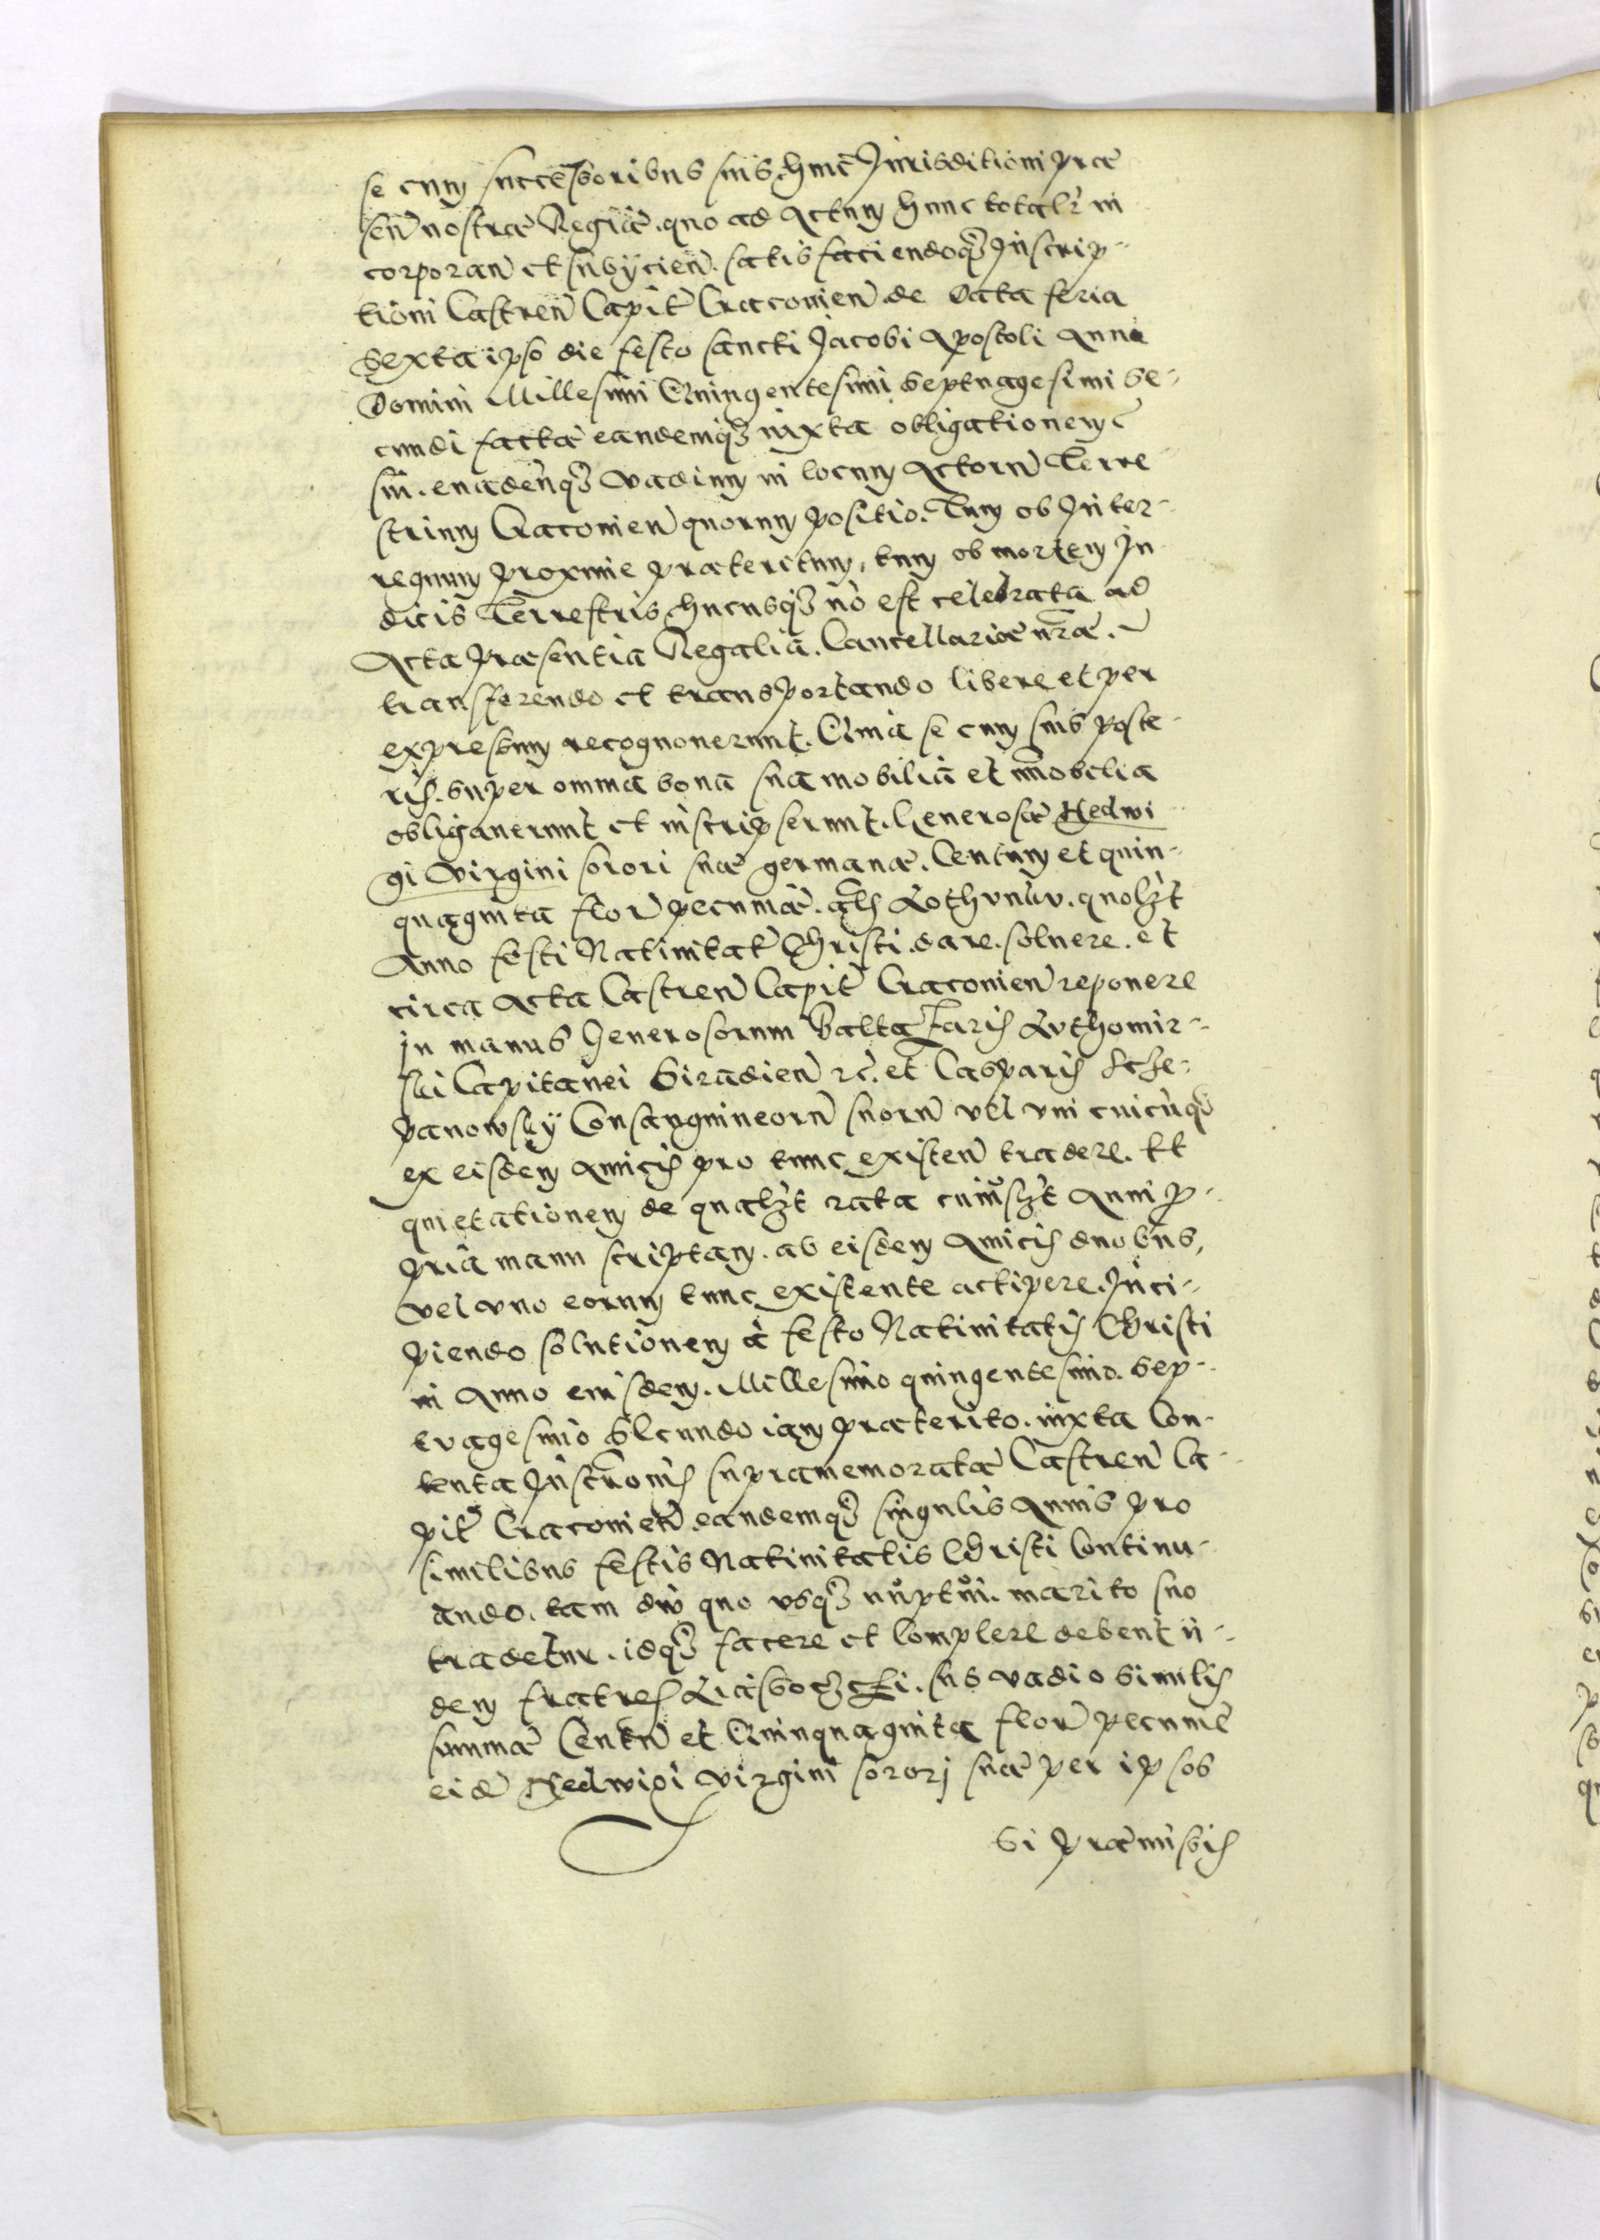 se cum successoribus suis. huic Jurisditioni præ
sen̄ nostræ Regiæ. quo ad Actum hunc totalr̄ in
corporan̄ et subÿcien̄. satis faciendoqʒ Jnscrip-
tioni Castren̄ Capit̄ Cracovien̄ de Data feria
Sexta ipso die festo sancti Jacobi Apostoli Anni
Domini Millesimi Quingentesimi Septuagesimi Se-
cundi factæ eandemqʒ iuxta obligationem
sui. evaden̄qʒ Vadium in locum Actorū Terre
strium Cracovien̄ quorum positio. Tum ob Jnter-
regnum proxime præteritum, tum ob mortem Ju
dicis Terrestris hucusqʒ nō est celebrata ad
Acta Præsentia Regalia. Cancellariæ nr̄æ.
transferendo et transportando libere et per
expressum recognoverunt. Quia se cum suis poste-
ris. super omnia bona sua mobilia et im̄obilia
obligaverunt et inscripserunt. Generosæ Hedwi
gi Virgini sorori suæ germanæ. Centum et quin-
quaginta flor̄ pecuniæ. als Lothunkv. quolʒt
Anno festi Nativitat̄ Christi. dare. solvere. et
circa Acta Castren̄ Capit̄ Cracovien̄ reponere
in manus Generosorum Baltazaris Luthomir-
ski Capitanei Siradien̄ rc̄. et Casparis Scze-
panowskÿ Consanguineorū suorū vel vni cuicūqʒ
ex eisdem Amicis pro tunc existen̄ tradere. Et
quietationem de qualʒt rata cuiuslʒt Anni p-
pria manu scriptam. ab eisdem Amicis duobus,
vel vno eorum tunc existente accipere. Jnci-
piendo solutionem à festo Nativitatis Christi
in Anno eiusdem. Millesimo quingentesimo. sep-
tuagesimo Secundo iam præterito. iuxta Con-
tenta Jnscr̄onis supramemoratæ Castren̄ Ca-
pit̄ Cracovien̄. eandemqʒ singulis Annis pro
similibus festis Nativitatis Christi Continu-
ando. tam diu quo vsqʒ nuptui. marito suo
tradetur. idqʒ facere et Complere debent ii-
dem fratres sub vadio similis
summæ Centū et Quinquaginta flor̄ pecuniæ
eidē Hedwigi virgini sorori suæ per ipsos
Si præmissis